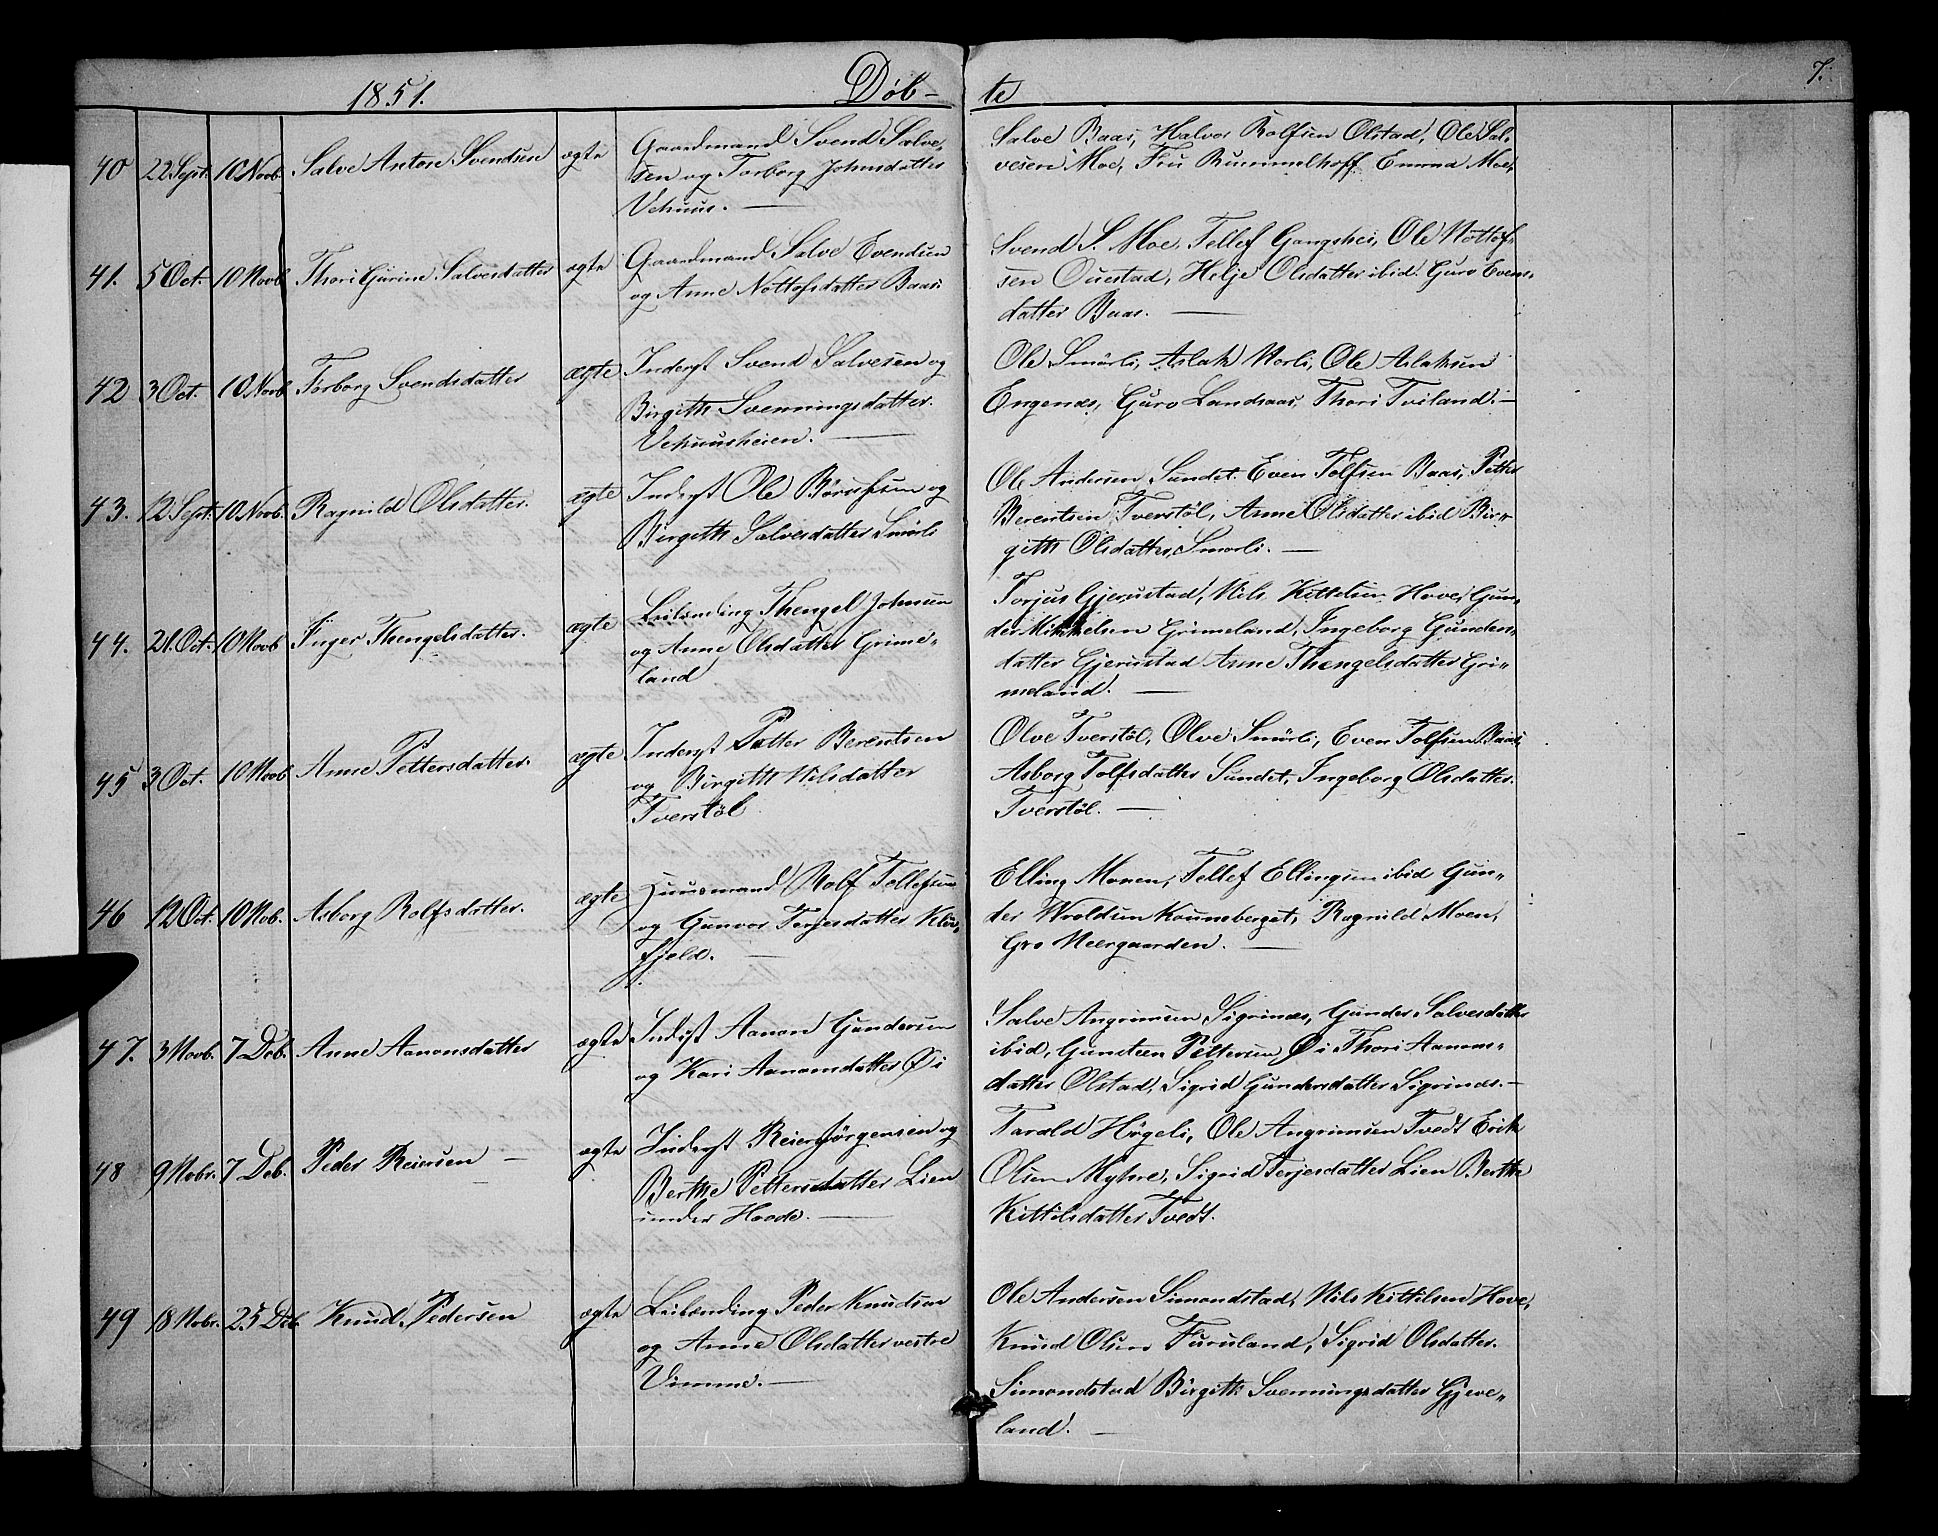 1851. Døb- te 7.
40 22 Sept. 10 Novb. Salve Antore Svendsen ægte Gaardmand Svend Salve-
sen og Torborg Johnsdatter
Vehuus. —
Salve Baas, Halvor Rolfsen Olstad, Ole Sal-
vesen Moe, Fru Rummelhoff Emma Moe,
41. 5 Oct. 10 Novb. Thori Gurine Salvesdatter ægte Gaardmand Salve Evendsen
og Anne Nottofsdatter Baas
Svend S. Moe, Tellef Gangshei, Ole Nottof-
sen Ouestad, Helje Olsdatter ibid. Guro Evens-
datter Baas. —
42 3 Oct. 10 Novb Torborg Svendsdatter ægte Inderst Svend Salvesen og
Birgith Svenningsdatter.
Vehuusheien. —
Ole Smørli, Aslak Norli, Ole Aslaksen
Engenæs, Guro Landsaas, Thori Tviland. —
43. 12 Sept. 10 Novb. Ragnild Olsdatter. ægte Inderst Ole Børufsen og
Birgith Salvesdatter Smørli
Ole Andersen Sundet. Even Tolfsen Baas, Petter
Berentsen Tverstøl, Anne Olsdatter ibid Bir-
gith Olsdatter, Smørli. —
44. 21. Oct. 10 Novb Inger Thengelsdatter. ægte Leilænding Thengel Johnsen
og Anne Olsdatter Grime-
land
Torjus Gjerustad, Nils Kittelsen Hove, Gun-
der Mikkelsen Grimeland, Ingeborg Gunders-
datter Gjerustad Anne Thengelsdatter Gri-
meland. —
45 3 Oct. 10 Novb Anne Pettersdatter. ægte Inderst Petter Berentsen
og Birgith Nilsdatter
Tverstøl
Olve Tverstøl, Olve Smørli, Even Tolfsen Baas,
Asborg Tolfsdatter Sundet, Ingeborg Olsdatter.
Tverstøl. —
46 12 Oct. 10 Nob. Asborg Rolfsdatter. ægte Huusmand Rolf Tellefsen
og Gunvor Terjesdatter
fjeld. —
Elling Monen, Tellef Ellingsen ibid Gun-
der Wroldsen Kounsberget, Ragnild Moen,
Gro Neergaarden. —
47. 3 Novb. 7 Deb. Anne Aanonsdatter ægte Inderst Aanon Gundersen
og Kari Aanonsdatter Øi
Salve Angrimsen, Sigrinæs, Gunder Salvesdatter
ibid, Gunsteen Pettersen Øi Thori Aanons-
datter Olstad, Sigrid Gundersdatter Sigrinæs. —
48 9 Nobr. 7 Deb. Peder Reiersen — ægte Inderst Reier Jørgensen og
Berthe Pettersdatter Lien
under Hoode. —
Tarald Høgeli, Ole Angrimsen Tvedt Erik
Olsen Myhre, Sigrid Terjesdatter Lien Berthe
Kittilsdatter Tvedt.
49 18 Nobr. 25 Deb. Knud Pedersen ægte Leilænding Peder Knudsen
og Anne Olsdatter vestre
Vimme. —
Ole Andersen Simondstad, Nils Kittilsen Hove,
Knud Olsen Furuland, Sigrid Olsdatter.
Simondstad Birgith Svenningsdatter Gjeve-
land. —